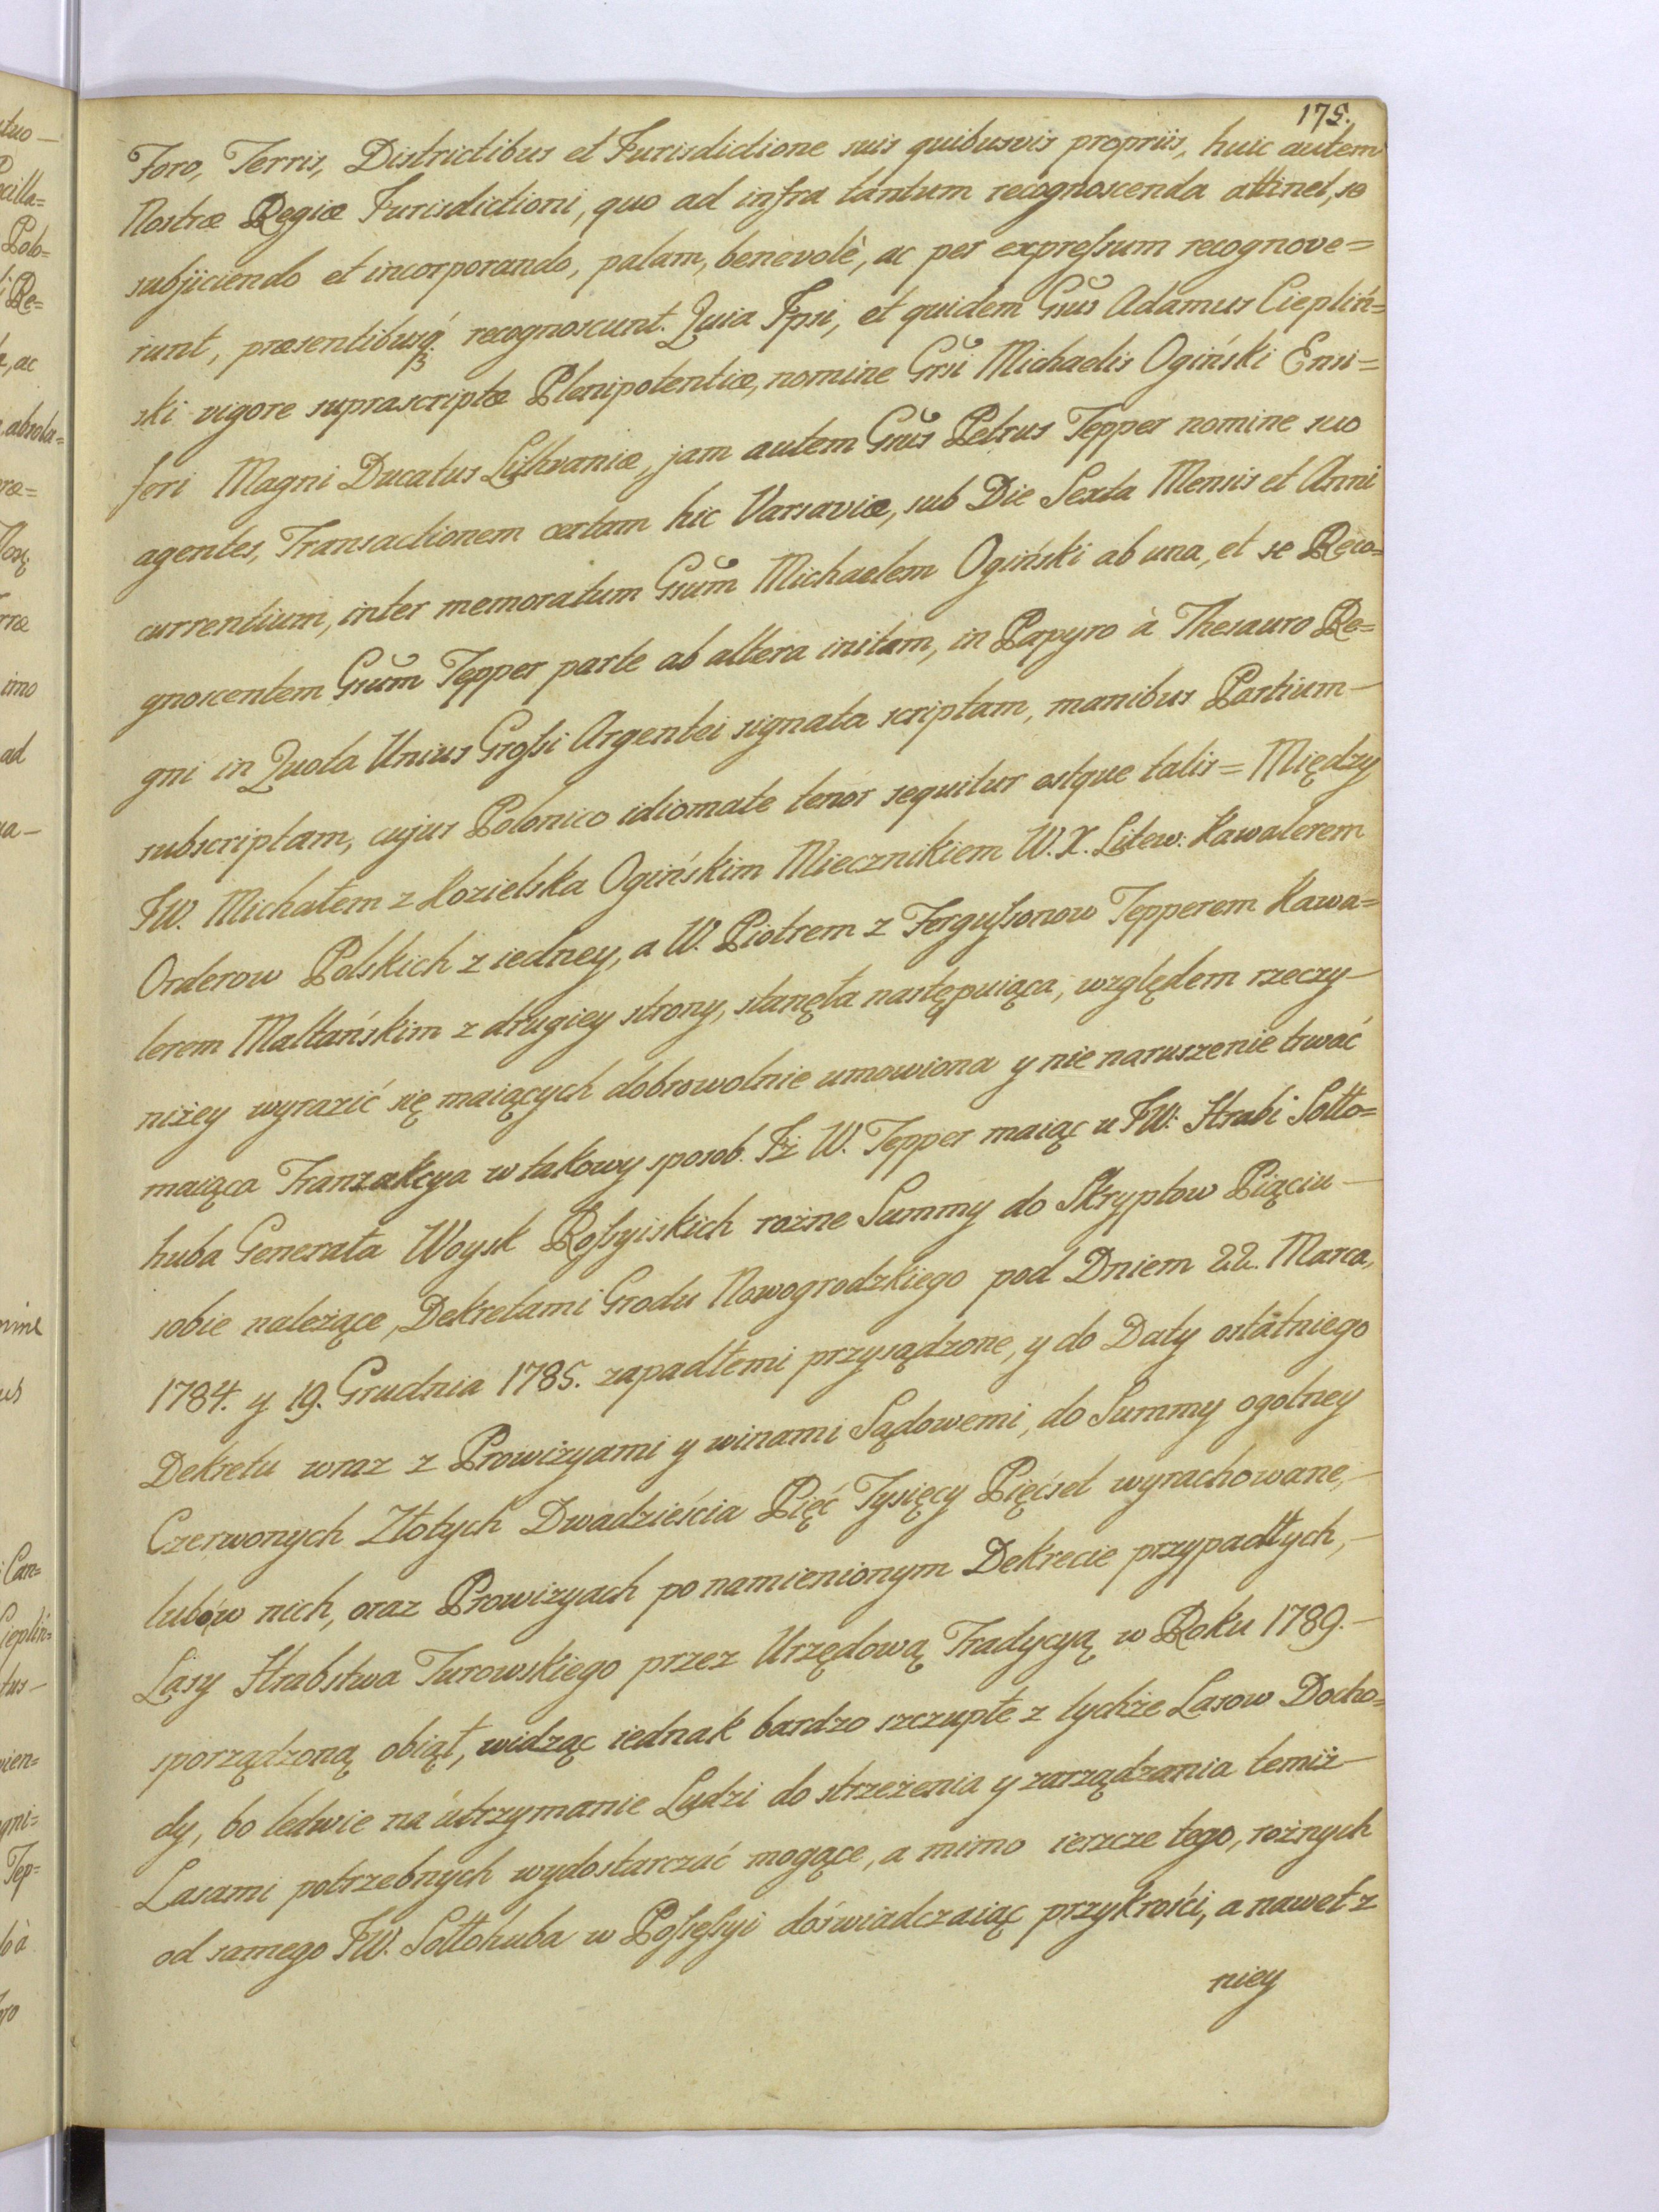 175.
Foro, Terris, Districtibus et Jurisdictione suis quibusvis propriis, huic autem
Nostræ Regiæ Jurisdictioni, quo ad infra tantum recognoscenda attinet, se
subjiciendo et incorporando, palam, benevolè, ac per expressum recognove=
runt, præsentibusq́ recognoscunt. Quia Ipsi, et quidem Gnus Adamus Cieplin=
ski vigore suprascriptæ Plenipotentiæ, nomine Gnsi Michaelis Ogiński Ensi=
feri Magni Ducatus Lithvaniæ, jam autem Gnus Petrus Tepper nomine suo
agentes, Transactionem certam hic Varsaviæ, sub Die Sexta Mensis et Anni
currentium, inter memoratum Gnum Michaelem Ogiński ab una, et se Reco=
gnoscentem Gnum Tepper parte ab altera initam, in Papyro à Thesauro Re=
gni in Quota Unius Grossi Argentei signata scriptam, manibus Partium—
subscriptam, cujus Polonico idiomate tenor sequitur estque talis = Między
JW. Michałem z Kozielska Ogińskim Miecznikiem W. X. Litew: Kawalerem
Orderow Polskich z iedney, a W. Piotrem z Fergussonow Tepperem Kawa=
lerem Maltańskim z drugiey strony, stanęła następuiąca, względem rzeczy—
niżey wyrazić się maiących dobrowolnie umowiona y nie naruszenie trwać
maiąca Tranzakcya w takowy sposob. Iż W. Tepper maiąc u JW: Hrabi Sołło=
huba Generała Woysk Rossyiskich rożne Summy do Skryptow Pięciu—
sobie należące, Dekretami Grodu Nowogrodzkiego pod Dniem 22. Marca,
1784. y 19. Grudnia 1785. zapadłemi przysądzone, y do Daty ostatniego
Dekretu wraz z Prowizyami y winami Sądowemi, do Summy ogolney
Czerwonych Złotych Dwadzieścia Pięć Tysięcy Pięćset wyrachowane,—
lubo w nich, oraz Prowizyach po namienionym Dekrecie przypadłych,—
Lasy Hrabstwa Turowskiego przez Urzędową Tradycyą w Roku 1789.—
sporządzoną obiął, widząc iednak bardzo szczupłe z tychże Lasow Docho=
dy, bo ledwie na utrzymanie Ludzi do strzeżenia y zarządzania temiż—
Lasami potrzebnych wydostarczać mogące, a mimo ieszcze tego, rożnych
od samego JW. Sołłohuba w Possessyi doświadczaiąc przykrości, a nawet z
niey